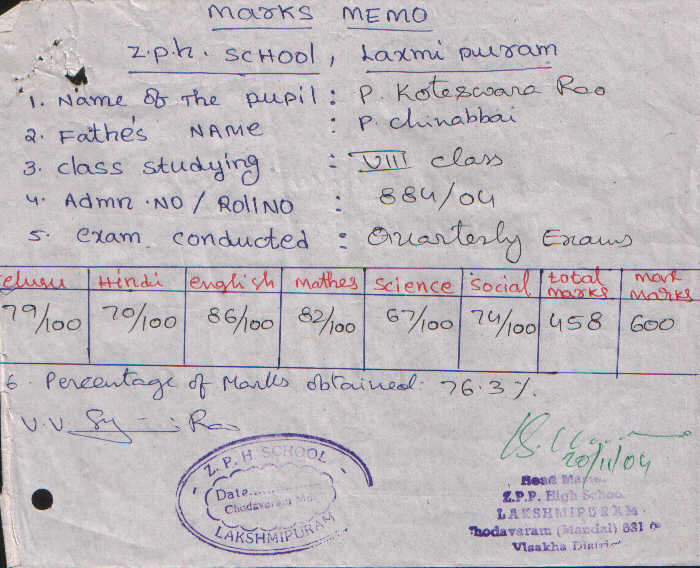 MARKS MEMO
Z.p.h. SCHOOL, Laxmi puram
1. Name of the pupil : P. Koteswara Rao
2. Fathe's NAME : P. chinabbai
3. class studying : VIII class
4. Admn.NO / RollNO : 884/04
5. exam conducted : Quarterly Exams
elugu Hindi english mathes science social total marks mark marks
79/100 70/100 86/100 82/100 67/100 74/100 458 600
6. Percentage of Marks obtained. 76.3%.
V.V. Rao
20/11/04
Z. P. H. SCHOOL
Date
Chodavaram
LAKSHMIPURAM
Head
Z.P.P. High Schoo
LAKSHMIPURAM
hodavaram (Mandal) 531
Visakha